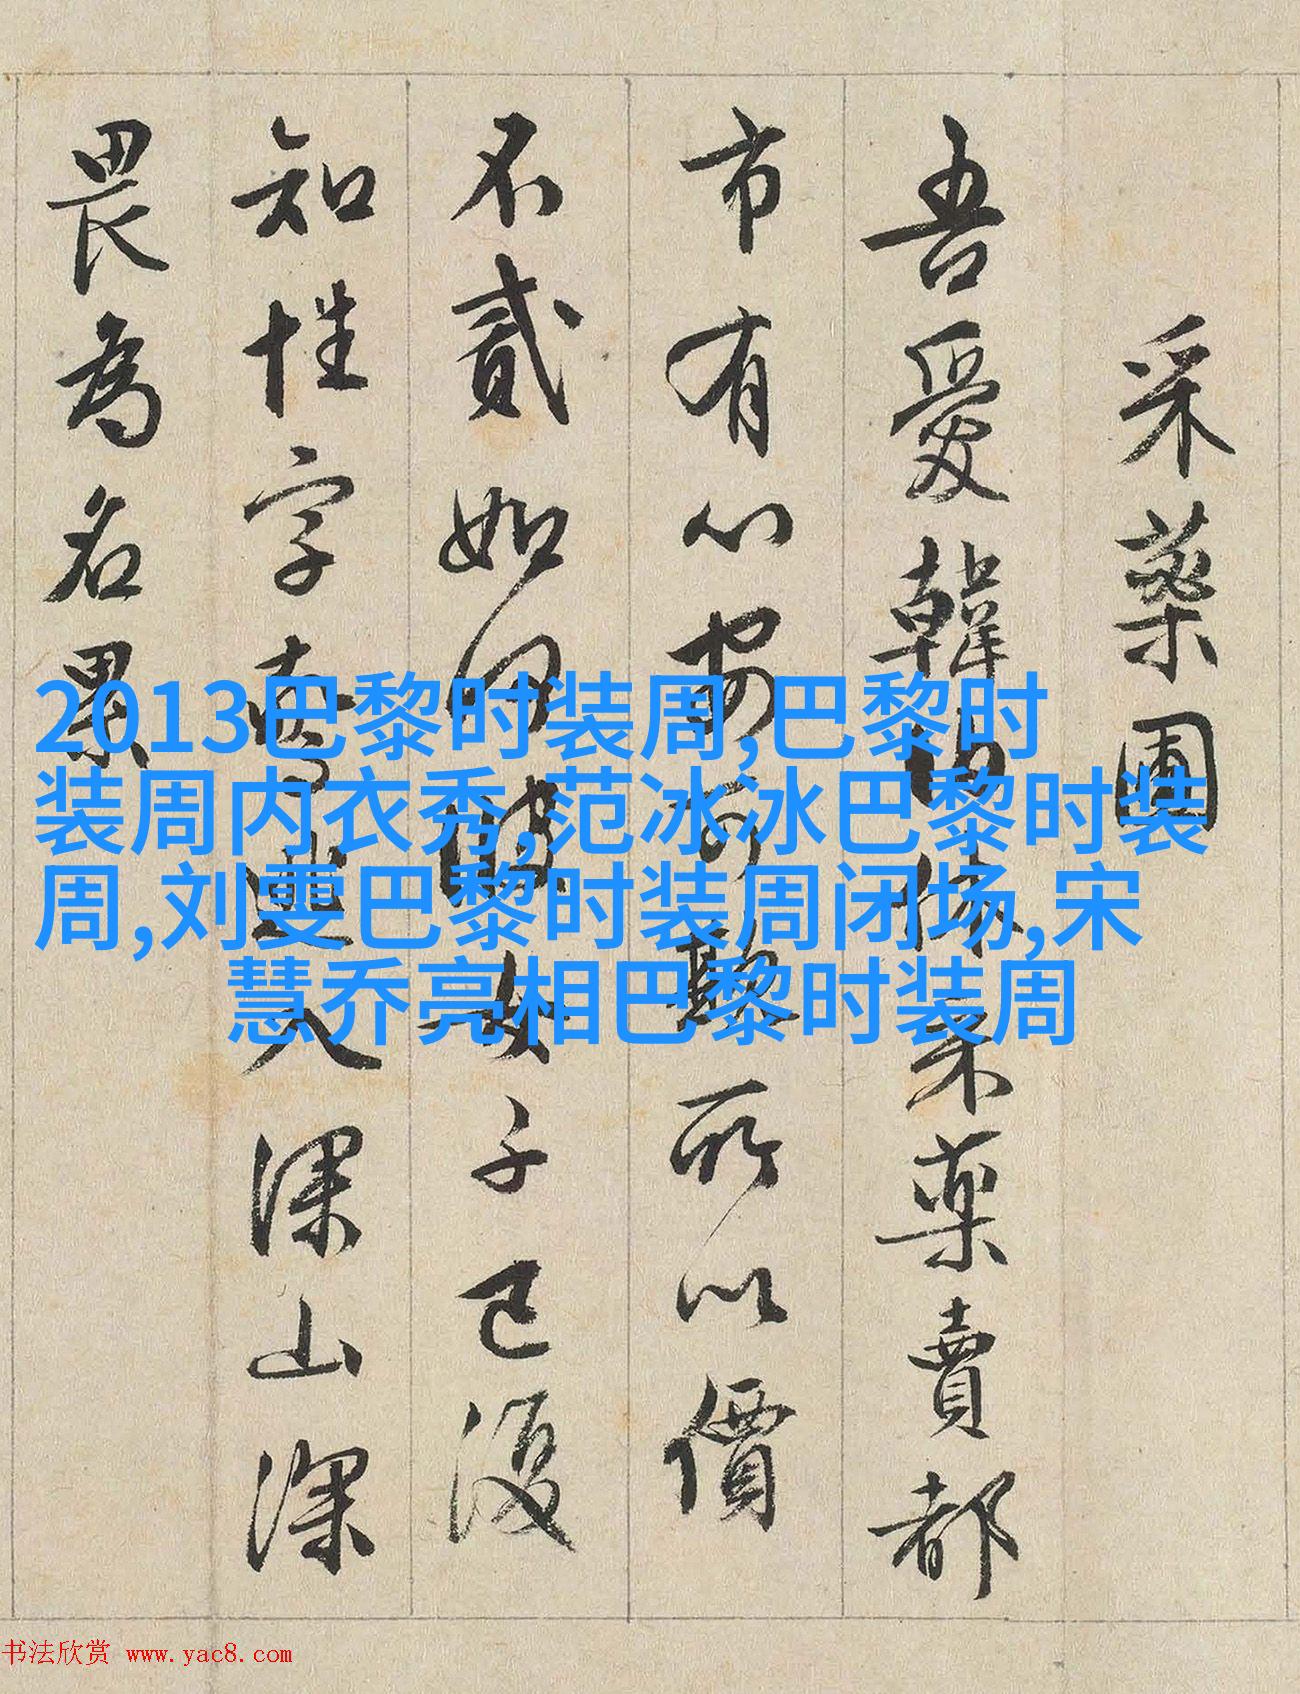 采藥圃
吾愛韓伯休采藥賣都
市有心安可欺所以價
不貳如何彼女子已復
知性字入深山深
畏為名累
2013巴黎时装周,巴黎时
装周内衣秀,范冰冰巴黎时装
周,刘雯巴黎时装周闭场,宋
慧乔亮相巴黎时装周
书法欣赏 www.yac8.com